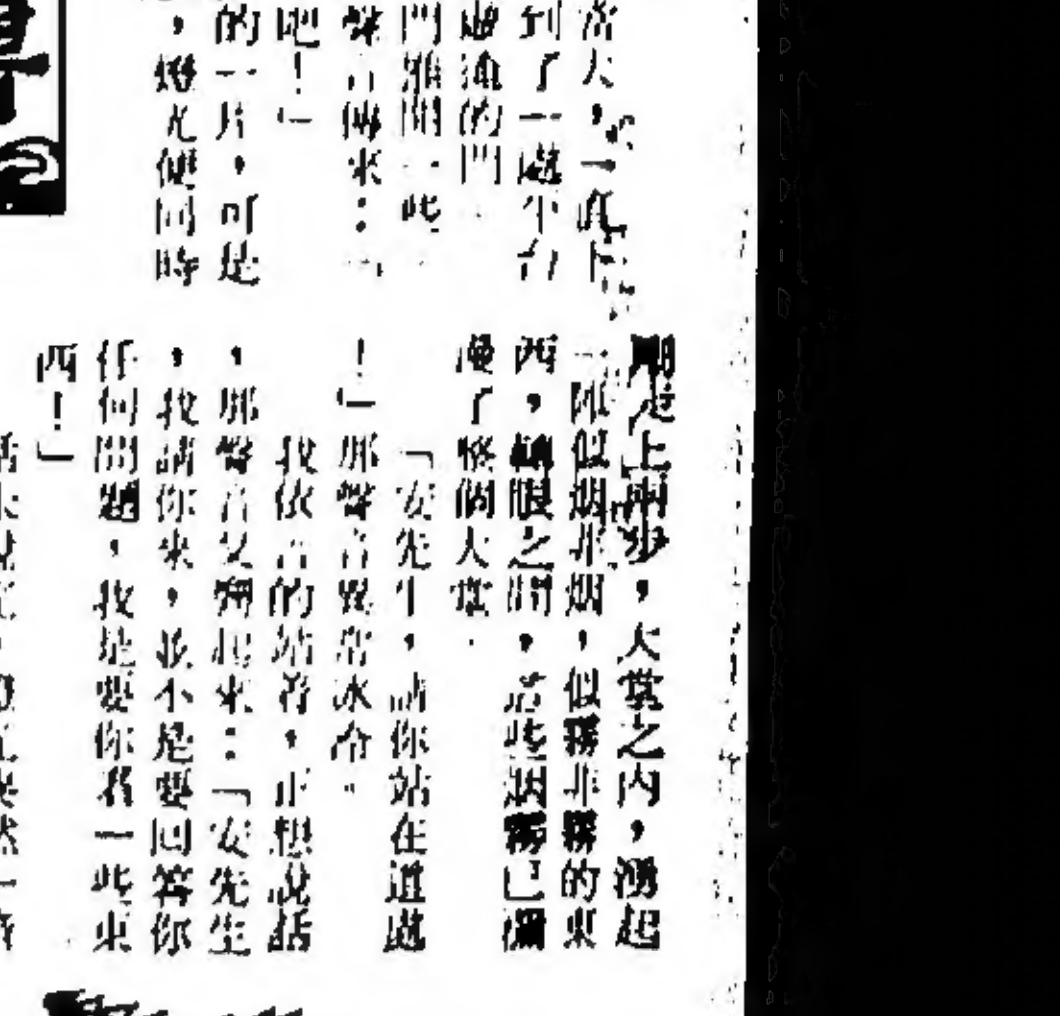 當大，一直上
到了一處平台
處進的門
門推開一些
聲音傳來：「
吧！」
的一片，可是
，燈光便同時
剛走上兩步，大堂之內，湧起
一陣似烟非烟，似霧非霧的東
西，轉眼之間，這些烟霧已瀰
漫了整個大堂。
「安先生，請你站在這處
！」那聲音異常冰冷。
我依言的站着，正想說話
，那聲音又響起來：「安先生
，我請你來，並不是要回答你
任何問題，我是要你看一些東
西！」